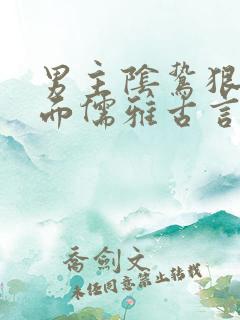 男主陰鷙狠
而儒雅古言
喬劍文
未經同意禁止轉載